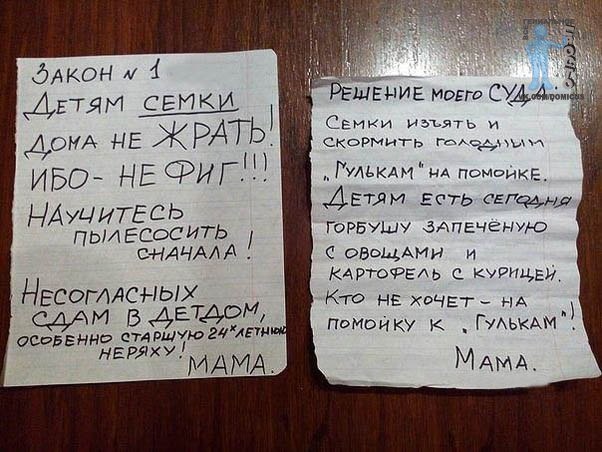 ЗАКОН N 1
ДЕТЯМ СЕМКИ
ДОМА НЕ ЖРАТЬ!
ИБО - НЕ ФИГ!!!
НАУЧИТЕСЬ
ПЫЛЕСОСИТЬ
СНАЧАЛА!
НЕСОГЛАСНЫХ
СДАМ В ДЕТДОМ,
ОСОБЕННО СТАРШУЮ 24х ЛЕТНЮЮ
НЕРЯХУ!
МАМА.
РЕШЕНИЕ МОЕГО СУДА.
СЕМКИ ИЗЪЯТЬ И
СКОРМИТЬ ГОЛОДНЫМ
„ГУЛЬКАМ" НА ПОМОЙКЕ.
ДЕТЯМ ЕСТЬ СЕГОДНЯ
ГОРБУШУ ЗАПЕЧЁНУЮ
С ОВОЩАМИ И
КАРТОФЕЛЬ С КУРИЦЕЙ.
КТО НЕ ХОЧЕТ - НА
ПОМОЙКУ К „ГУЛЬКАМ"!
МАМА.
ГЕНИАЛЬНОЕ
VK.COM/DOMICUS